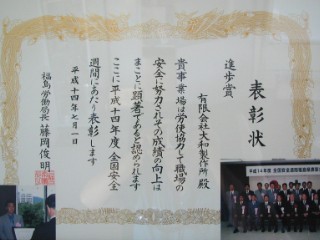 表彰状
進歩賞
有限会社大和製作所 殿
貴事業場は労使協力して職場の
安全に努力されその成績の向上は
まことに顕著であると認められます
ここに平成十四年度全国安全
週間にあたり表彰します
平成十四年七月一日
福島労働局長 藤岡俊明